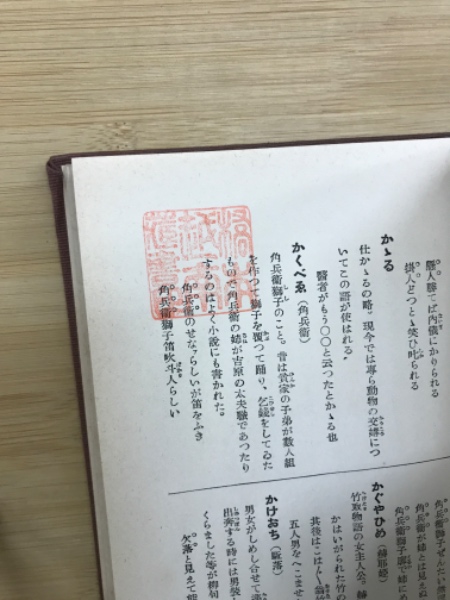 醫人勝てば内儀にかりられる
掛人どつとゝ笑ひ叱られる
かゝる
仕かゝるの略。現今では専ら動物の交媾につ
いてこの語が使はれる。
醫者がもう〇〇と云つたとかゝる也
かくべゑ（角兵衛）
角兵衛獅子のこと。昔は貧家の子弟が数人組
を作つて獅子を覆つて踊り、乞銭をしてゐた
もので角兵衛の姉が吉原の太夫職であつたり
するのはよく小説にも書かれた。
角兵衛のせなゝらしいが笛をふき
角兵衛獅子笛吹斗人らしい
角兵衛獅子ぜんたい
角兵衛が姉とは見えぬ
角兵衛獅子廓で姉に
かぐやひめ（赫耶姫）
竹取物語の女主人公。
かはいがられた竹の
其後はこは〴〵
五人男をへこませ
かけおち（駈落）
男女がしめし合せて
出奔する時には男装
くらました等が柳句
欠落と見えて